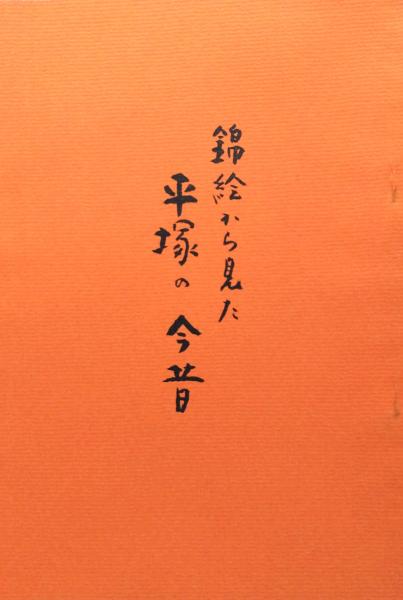 錦絵から見た
平塚の今昔